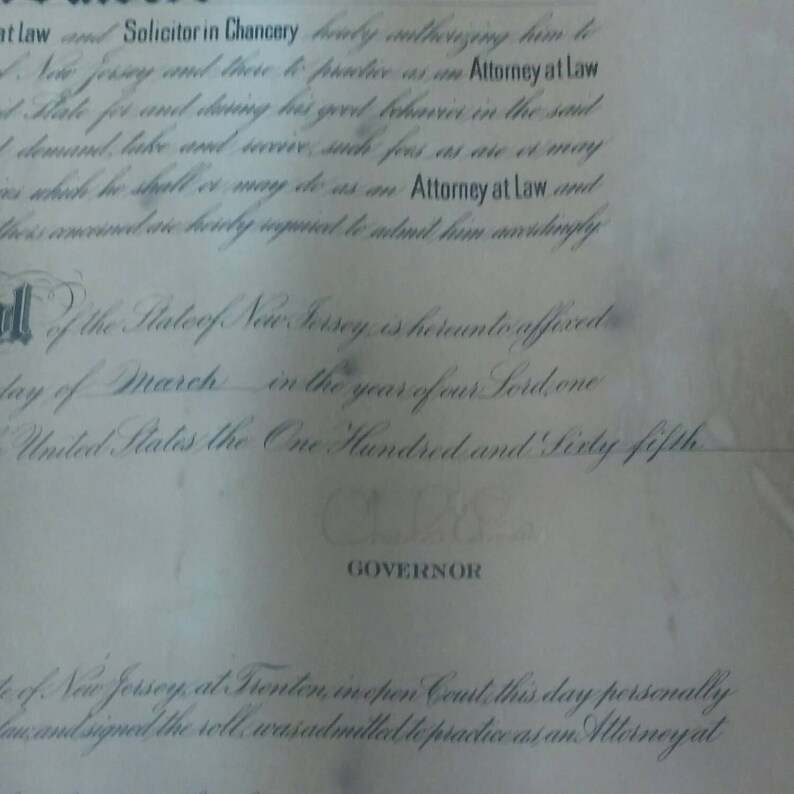 at Law and Solicitor in Chancery hereby authorizing him to
New Jersey and there to practice as an Attorney at Law
State for and during his good behavior in the said
demand, take and receive, such fees as are or may
which he shall or may do as an Attorney at Law and
concerned are hereby required to admit him accordingly.
of the State of New Jersey, is hereunto affixed
day of March in the year of our Lord, one
United States the One Hundred and Sixty fifth
GOVERNOR
of New Jersey, at Trenton, in open Court, this day personally
law, and signed the roll, was admitted to practice as an Attorney at